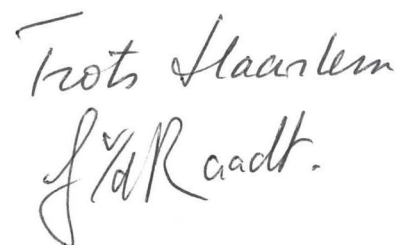 Trots Haarlem
J v/d Raadt.